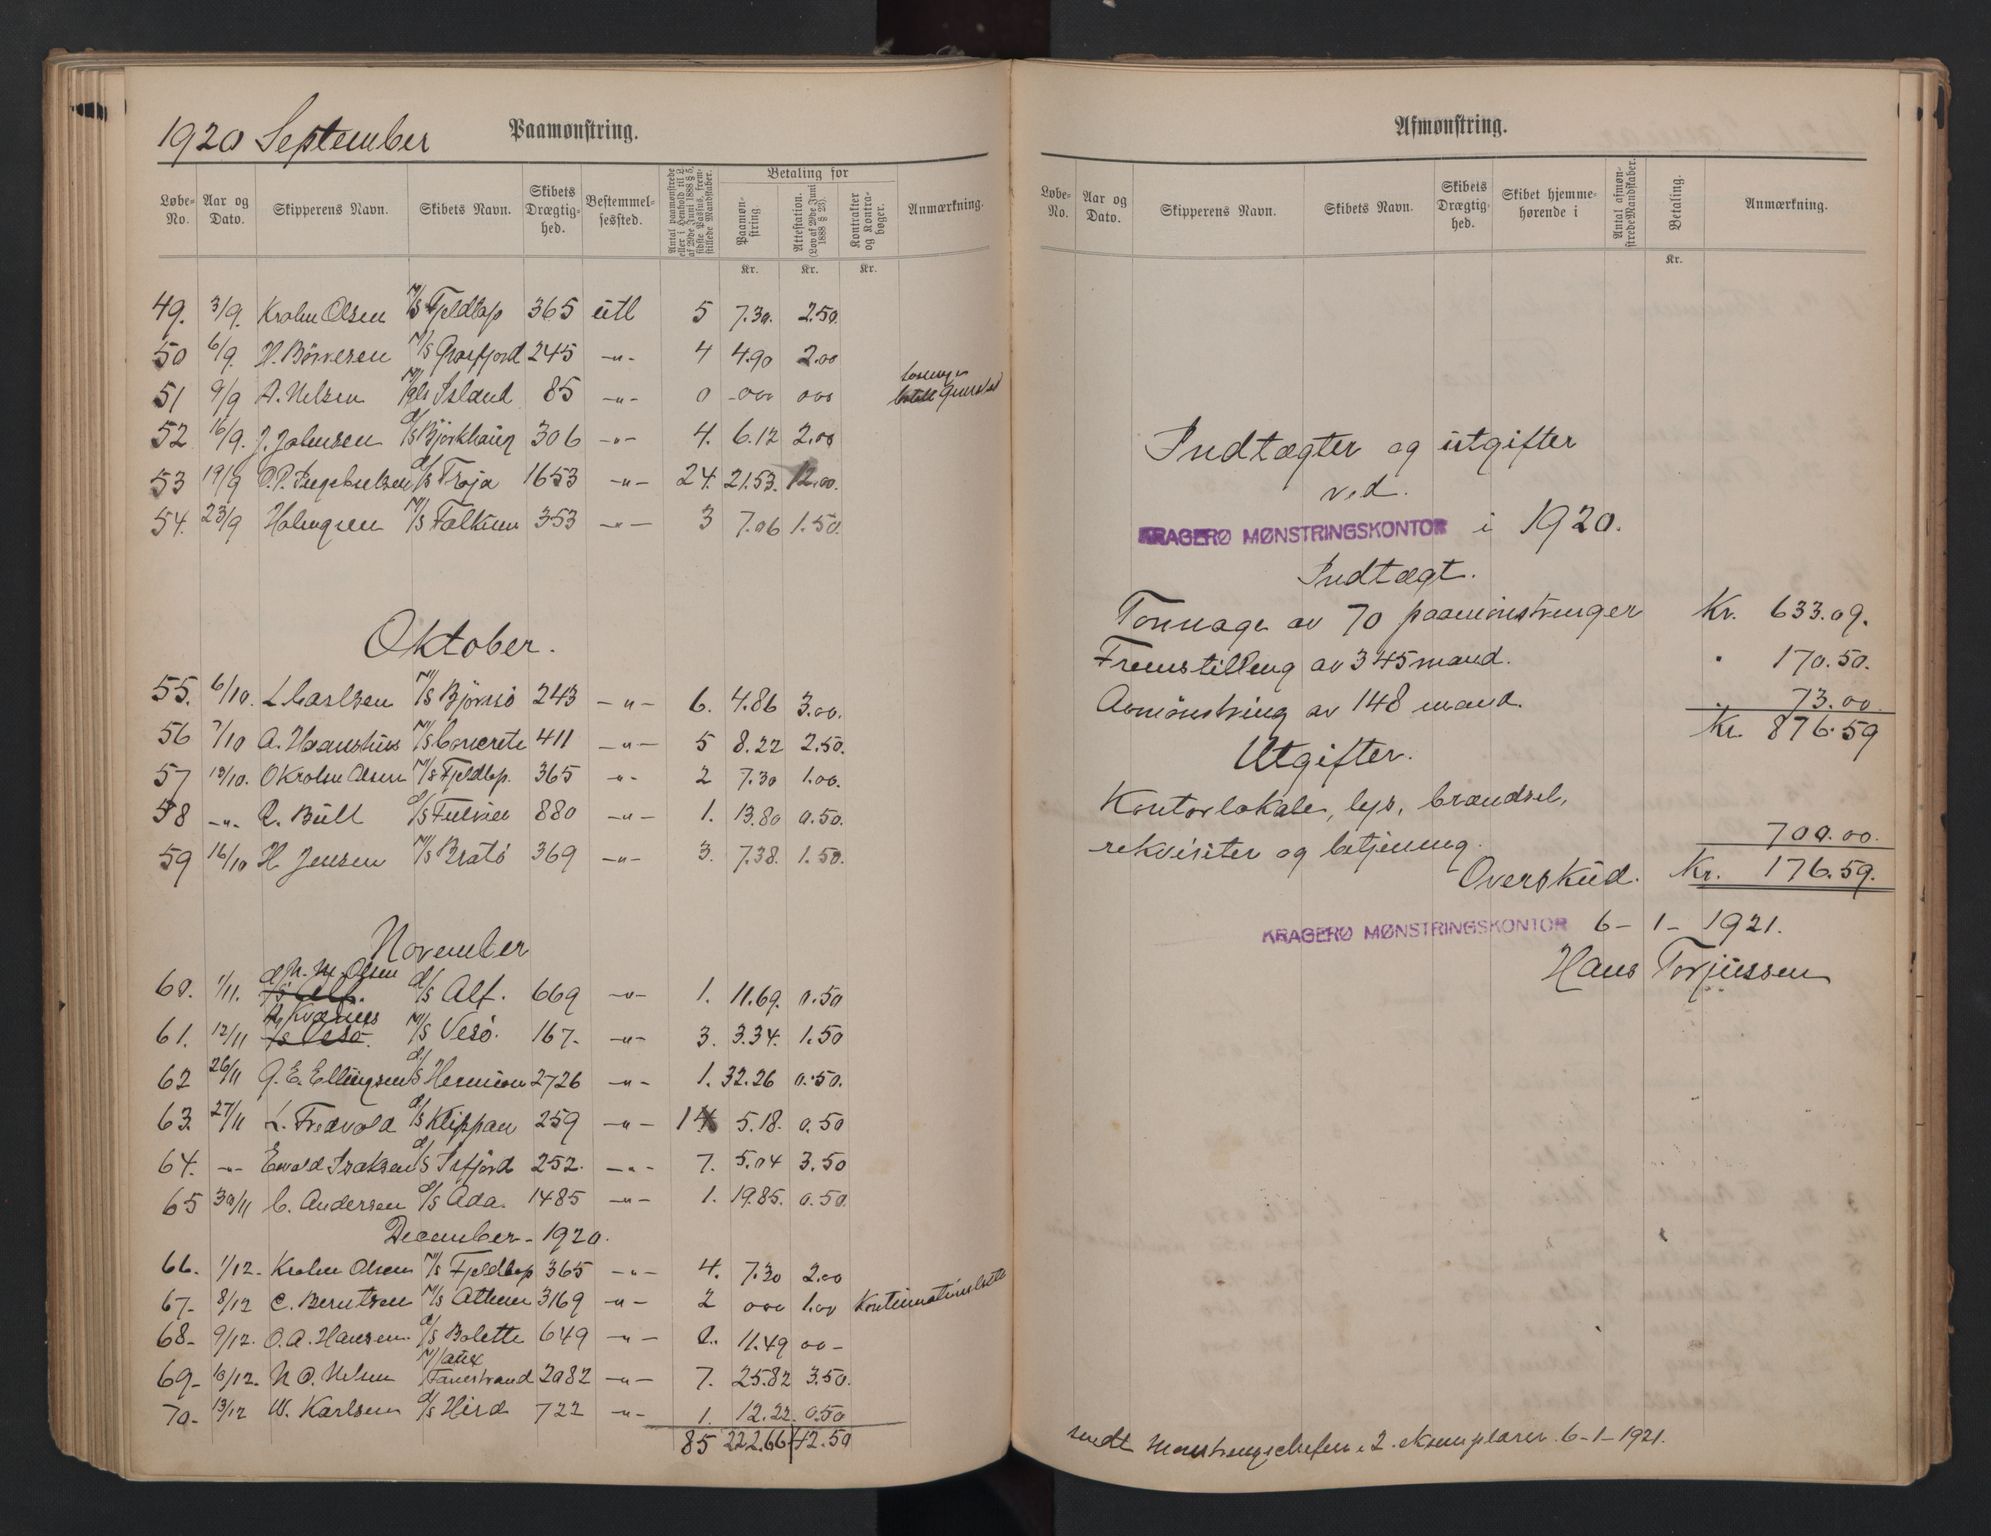 1920 September Paamønstring.
Løbe-No. Aar og Dato. Skipperens Navn. Skibets Navn. Skibets Drægtig-hed. Bestemmel-sessted. Antal paamønstrede eller i Henhold til L. af 29de Juni 1888 § 5, sidste Passus, frem-stillede Mandskaber. Betaling for Paamøn-string. Attestation. (Lov af 29de Juni 1888 § 23). Kontrakter og Kontra-bøger. Anmærkning.
Kr. Kr. Kr.
49. 3/9. Krohn Olsen M/S Fjeldtop 365 utl 5 7.30. 2.50.
50 6/9. H. Børresen M/S 245 -"- 4 4.90 2.00
51 9/9 A. Nelsen Island 85 -"- 0 -000 000
52 16/9. J. Johnsen d/s Bjørkhaug 306 -"- 4. 6.12 2.00
53 19/9 O.P. d/s Troja 1653 -"- 24. 21.53. 12.00.
54. 23/9 Holmgren M/S Falkum 353 -"- 3 7.06 1.50.
Oktober.
55. 6/10. L Carlsen M/S Bjørnsö 243 -"- 6. 4.86 3.00.
56 7/10 A. M/S Concrete 411 -"- 5 8.22 2.50.
57 13/10. O Krohn Olsen M/S Fjeldtop. 365 -"- 2 7.30 1.00.
58 -"- R. Bull d/s 880 -"- 1. 13.80 0.50.
59 16/10 H. Jensen M/S Bratö 369 -"- 3. 7.38. 1.50.
November
60. 1/11. N. M. Olsen d/s Alf. 669 -"- 1. 11.69. 0.50
61. 12/11 Kværnes M/S Vesö. 167. -"- 3. 3.34. 1.50
62 26/11 G. E. Ellingsen d/s Hermion 2726 -"- 1. 32.26 0.50.
63. 27/11 L. Fredvold d/s Klippan 259 -"- 1 5.18. 0.50
64. -"- Ewald Isaksen d/s Isfjord 252. -"- 7. 5.04 3.50
65 30/11 C. Andersen d/s Ada. 1485 -"- 1. 19.85. 0.50.
December - 1920.
66. 1/12. Krohn Olsen M/S Fjeldtop 365 -"- 4. 7.30 2.00
67. 8/12 C. Berntsen M/S Athene 3169 -"- 2 000 1.00
68- 9/12. O. A. Hansen d/s Bolette 649 -"- 0. 11.49 00-
69- 10/12. N O. Nelsen M/aux Fanestrand 2082 -"- 7. 25.82 3.50.
70- 13/12 W. Karlsen d/s Hird 722 -"- 1. 12.22. 0.50
85 222.66 42.50
Afmønstring.
Løbe-No. Aar og Dato. Skipperens Navn. Skibets Navn. Skibets Drægtig-hed. Skibet hjemme-hørende i Antal afmøn-strede Mandskaber. Betaling. Anmærkning.
Kr.
Indtægter og utgifter
ved.
KRAGERØ MØNSTRINGSKONTOR i 1920.
Indtægt.
Tonnage av 70 paamönstringer Kr. 633.09.
Fremstilling av 345 mand. " 170.50.
Avmönstring av 148 mand. " 73.00.
Kr. 876.59
Utgifter.
Kontorlokale, lys, brændsel,
rekvisiter og betjening. 700.00.
Overskud. Kr. 176.59.
KRAGERØ MØNSTRINGSKONTOR 6-1-1921.
Hans Torjussen
sendt Mønstringschefen i 2. eksemplarer. 6-1-1921.